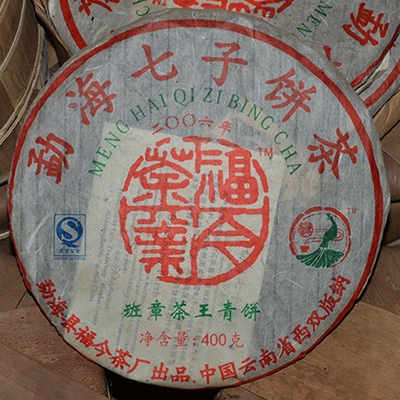 勐海七子饼茶
MENG HAI QI ZI BING CHA
二〇〇六年
TM
福今茶業
TM
班章茶王青饼
净含量:400克
勐海县福今茶厂出品.中国云南省西双版纳